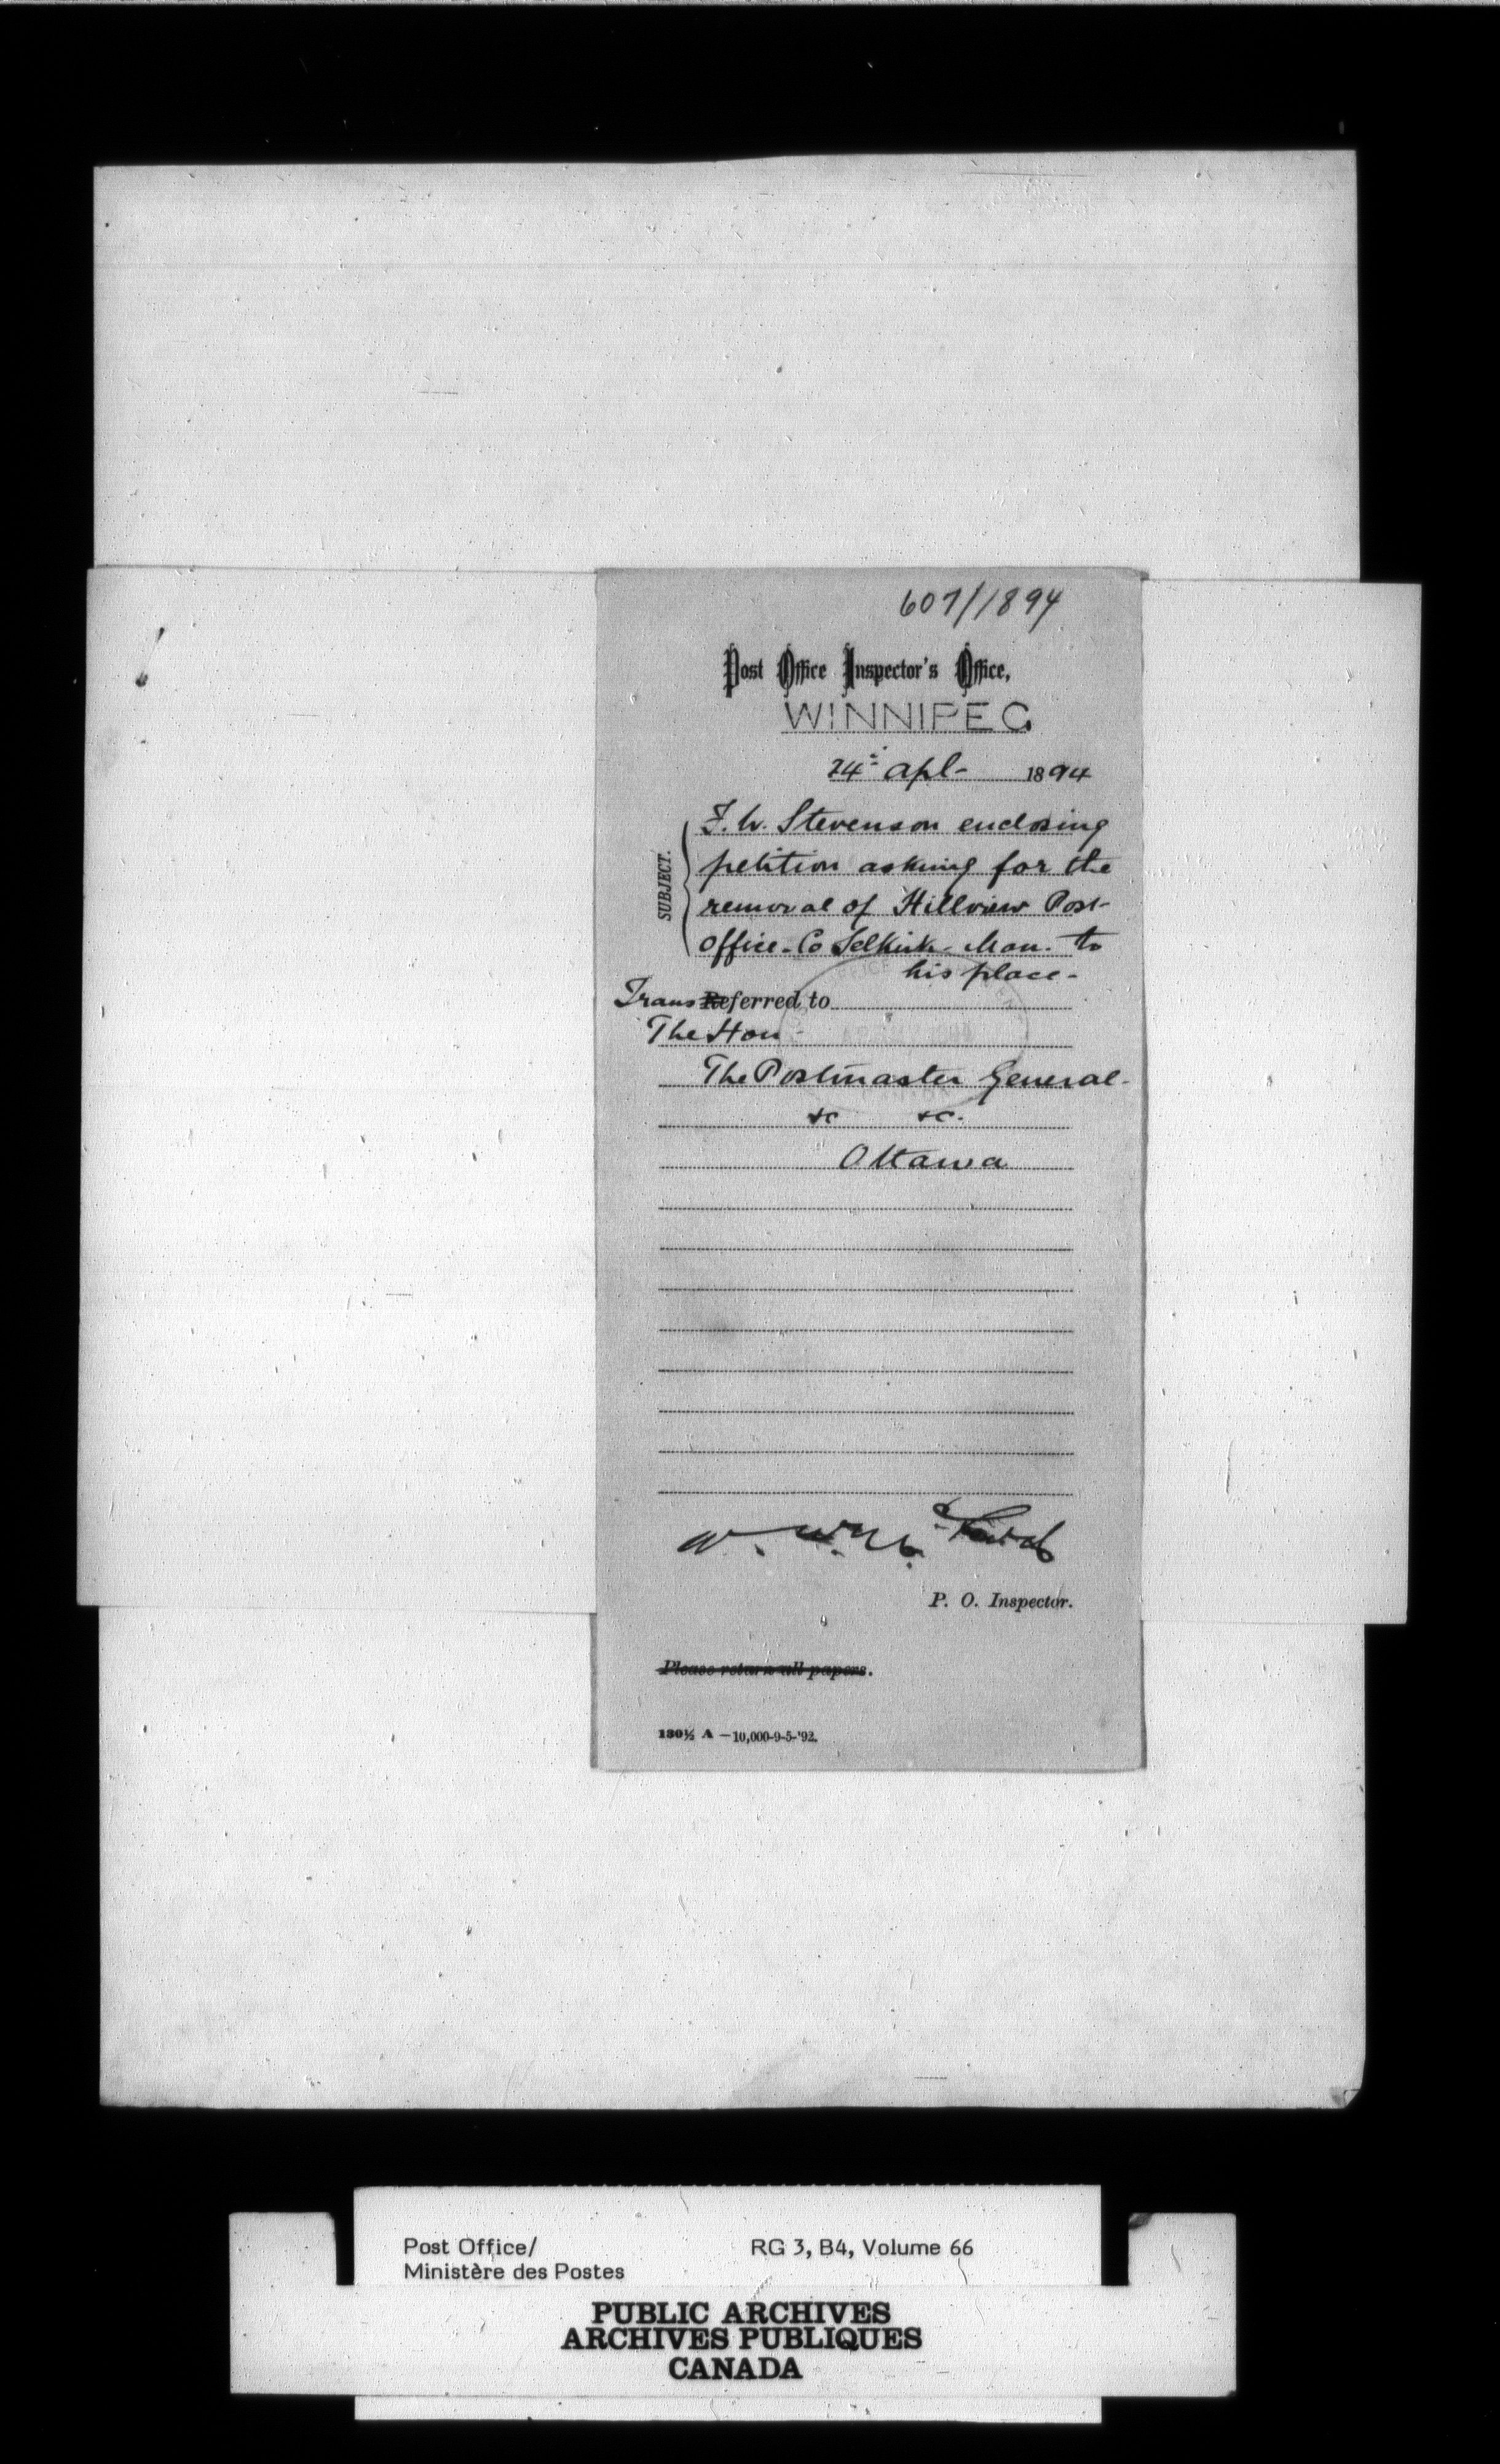 607/1894
Post Office Inspector's Office,
WINNIPEG
24th Apl- 1894
SUBJECT.
F. W. Stevenson enclosing
petition asking for the
removal of Hillview Post
Office - Co Selkirk - Man. to
his place -
Trans Referred to
The Hon
The Postmaster General -
&c &c.
Ottawa
P. O. Inspector.
Please return all papers.
130½ A —10,000-9-5-'92.
Post Office/ RG 3, B4, Volume 66
Ministère des Postes
PUBLIC ARCHIVES
ARCHIVES PUBLIQUES
CANADA